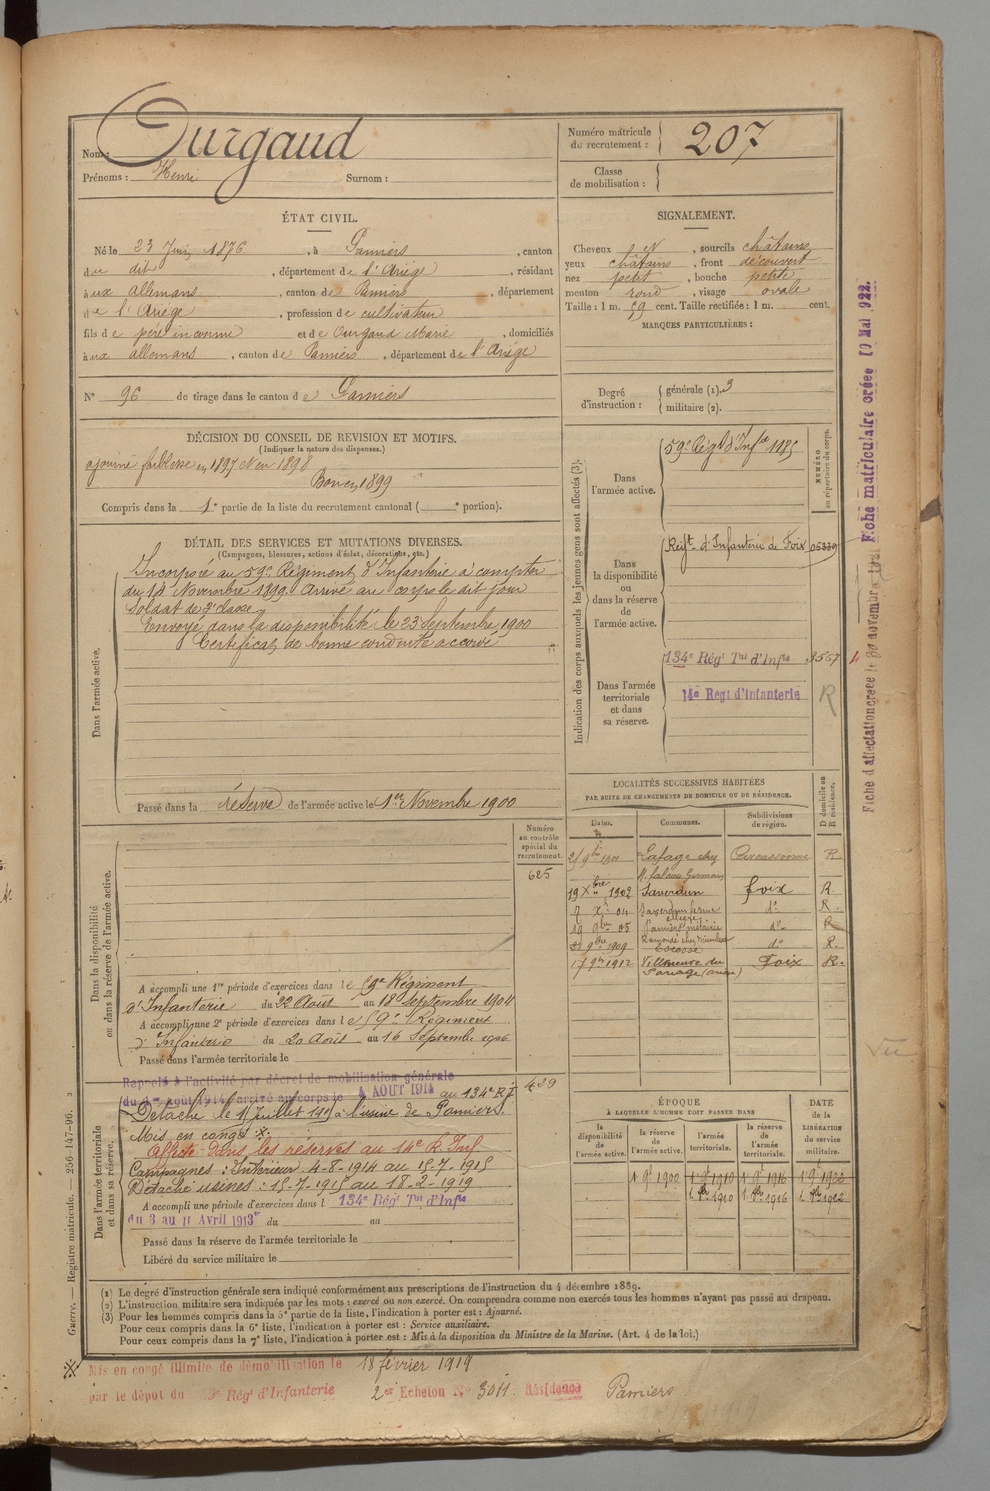 Nom: Ourgaud
Prénoms : Henri Surnom :
Numéro matricule du recrutement : 207
Classe de mobilisation :
ÉTAT CIVIL.
Né le 23 Juin 1876, à Pamiers, canton
du dit, département de l'Ariége, résidant
à aux allemans, canton de Pamiers, département
de l'Ariége, profession de cultivateur
fils de père inconnu et de Ourgaud Marie, domiciliés
à aux allemans, canton de Pamiers, département de l'Ariége
N° 96 de tirage dans le canton de Pamiers
SIGNALEMENT.
Cheveux N, sourcils châtains
yeux châtains, front découvert
nez petit, bouche petite
menton rond, visage ovale
Taille : 1 m. 59 cent. Taille rectifiée : 1 m. cent.
MARQUES PARTICULIÈRES :
Degré d'instruction : générale (1). 3
militaire (2).
DÉCISION DU CONSEIL DE REVISION ET MOTIFS.
(Indiquer la nature des dispenses.)
ajourné faiblesse en 1897 et en 1898
Bon en 1899
Compris dans la 1e partie de la liste du recrutement cantonal ( e portion).
DÉTAIL DES SERVICES ET MUTATIONS DIVERSES.
(Campagnes, blessures, actions d'éclat, décorations, etc.)
Dans l'armée active.
Incorporé au 59e Régiment d'Infanterie à compter
du 14 Novembre 1899. Arrivé au corps le dit jour
Soldat de 2e classe
Envoyé dans la disponibilité le 23 Septembre 1900
Certificat de bonne conduite accordé
Passé dans la réserve de l'armée active le 1er Novembre 1900
Indication des corps auxquels les jeunes gens sont affectés (3).
NUMÉRO au répertoire du corps.
Dans l'armée active.
59e Régt d'Infie 1985
Dans la disponibilité ou dans la réserve de l'armée active.
Régt d'Infanterie de Foix 05339
Dans l'armée territoriale et dans sa réserve.
134e Régt Tal d'Infie 3567
14e Regt d'Infanterie R
Fiche d'affectation créée le 30 novembre
Fiche matriculaire créée 10 Mai 1922.
LOCALITÉS SUCCESSIVES HABITÉES
PAR SUITE DE CHANGEMENTS DE DOMICILE OU DE RÉSIDENCE.
Dates. Communes. Subdivisions de région. D domicile ou R résidence.
Lafage chez Carcassonne R
19 Xbre 1902 Saverdun Foix R.
Saverdun do R.
Pamiers métairie do R
9bre 1909 Escosse do R.
17 9bre 1912 Villeneuve du Foix R.
Dans la disponibilité ou dans la réserve de l'armée active.
Numéro au contrôle spécial du recrutement.
625
A accompli une 1re période d'exercices dans le 59e Régiment
d'Infanterie du 22 Août au 18 Septembre 1904
A accompli une 2e période d'exercices dans le 59e Régiment
d'Infanterie du 20 Août au 16 Septembre 1906
Passé dans l'armée territoriale le
Dans l'armée territoriale et dans sa réserve.
Rappelé à l'activité par décret de mobilisation générale
du 1er août 1914, arrivé au corps le 4 AOUT 1914 au 134e RT 429
Détaché le 15 Juillet 1915 à l'usine de Pamiers.
Mis en congé ※
Affecté dans les réserves au 14e R. Inf.
Campagnes : Intérieur 4-8-1914 au 15-7-1915
Détaché usines : 15-7-1915 au 18-2-1919
A accompli une période d'exercices dans l 134e Régt Tal d'Infie
du 3 au 11 Avril 1913 du au
Passé dans la réserve de l'armée territoriale le
Libéré du service militaire le
ÉPOQUE
À LAQUELLE L'HOMME DOIT PASSER DANS
la disponibilité de l'armée active. la réserve de l'armée active. l'armée territoriale. la réserve de l'armée territoriale.
DATE de la LIBÉRATION du service militaire.
1 9e 1900 1 9e 1910 1 9e 1916 1 9e 1922
(1) Le degré d'instruction générale sera indiqué conformément aux prescriptions de l'instruction du 4 décembre 1889.
(2) L'instruction militaire sera indiquée par les mots : exercé ou non exercé. On comprendra comme non exercés tous les hommes n'ayant pas passé au drapeau.
(3) Pour les hommes compris dans la 5e partie de la liste, l'indication à porter est : Ajourné.
Pour ceux compris dans la 6e liste, l'indication à porter est : Service auxiliaire.
Pour ceux compris dans la 7e liste, l'indication à porter est : Mis à la disposition du Ministre de la Marine. (Art. 4 de la loi.)
Guerre. — Registre matricule. — 256-147-96.
※ Mis en congé illimité de démobilisation le 18 février 1919
par le dépot du 59e Régt d'Infanterie 2e Echelon N° 3011. Résidence Pamiers
Vu